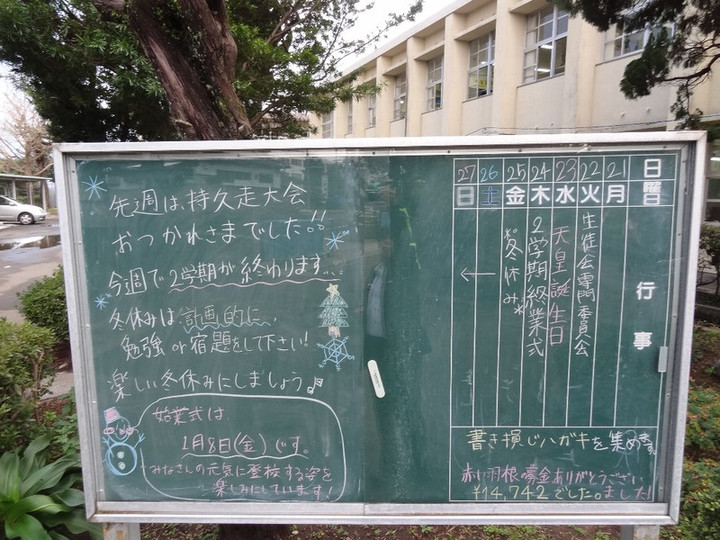 先週は、持久走大会
おつかれさまでした。!!
今週で2学期が終わります...
冬休みは計画的に、
勉強or宿題をして下さい!
楽しい冬休みにしましょう♪
始業式は、
1月8日(金)です。
みなさんの元気に登校する姿を
楽しみにしています!
日 曜日 行事
21 月
22 火 生徒会専門委員会
23 水 天皇誕生日
24 木 2学期終業式
25 金 *冬休み*
26 土 ←
27 日
書き損じハガキを集めます。
赤い羽根募金ありがとうござい
¥14,742でした。ました!